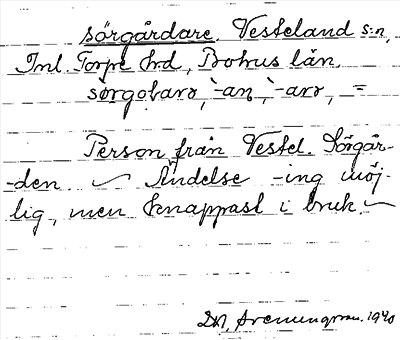 sörgårdare. Vesteland s:n,
Inl. Torpe hd, Bohus län.
sørgoɫarə, -an, -arə, =
Person från Vestel. Sörgår-
-den. ~ Ändelse -ing möj-
lig, men knappast i bruk. ~
1940